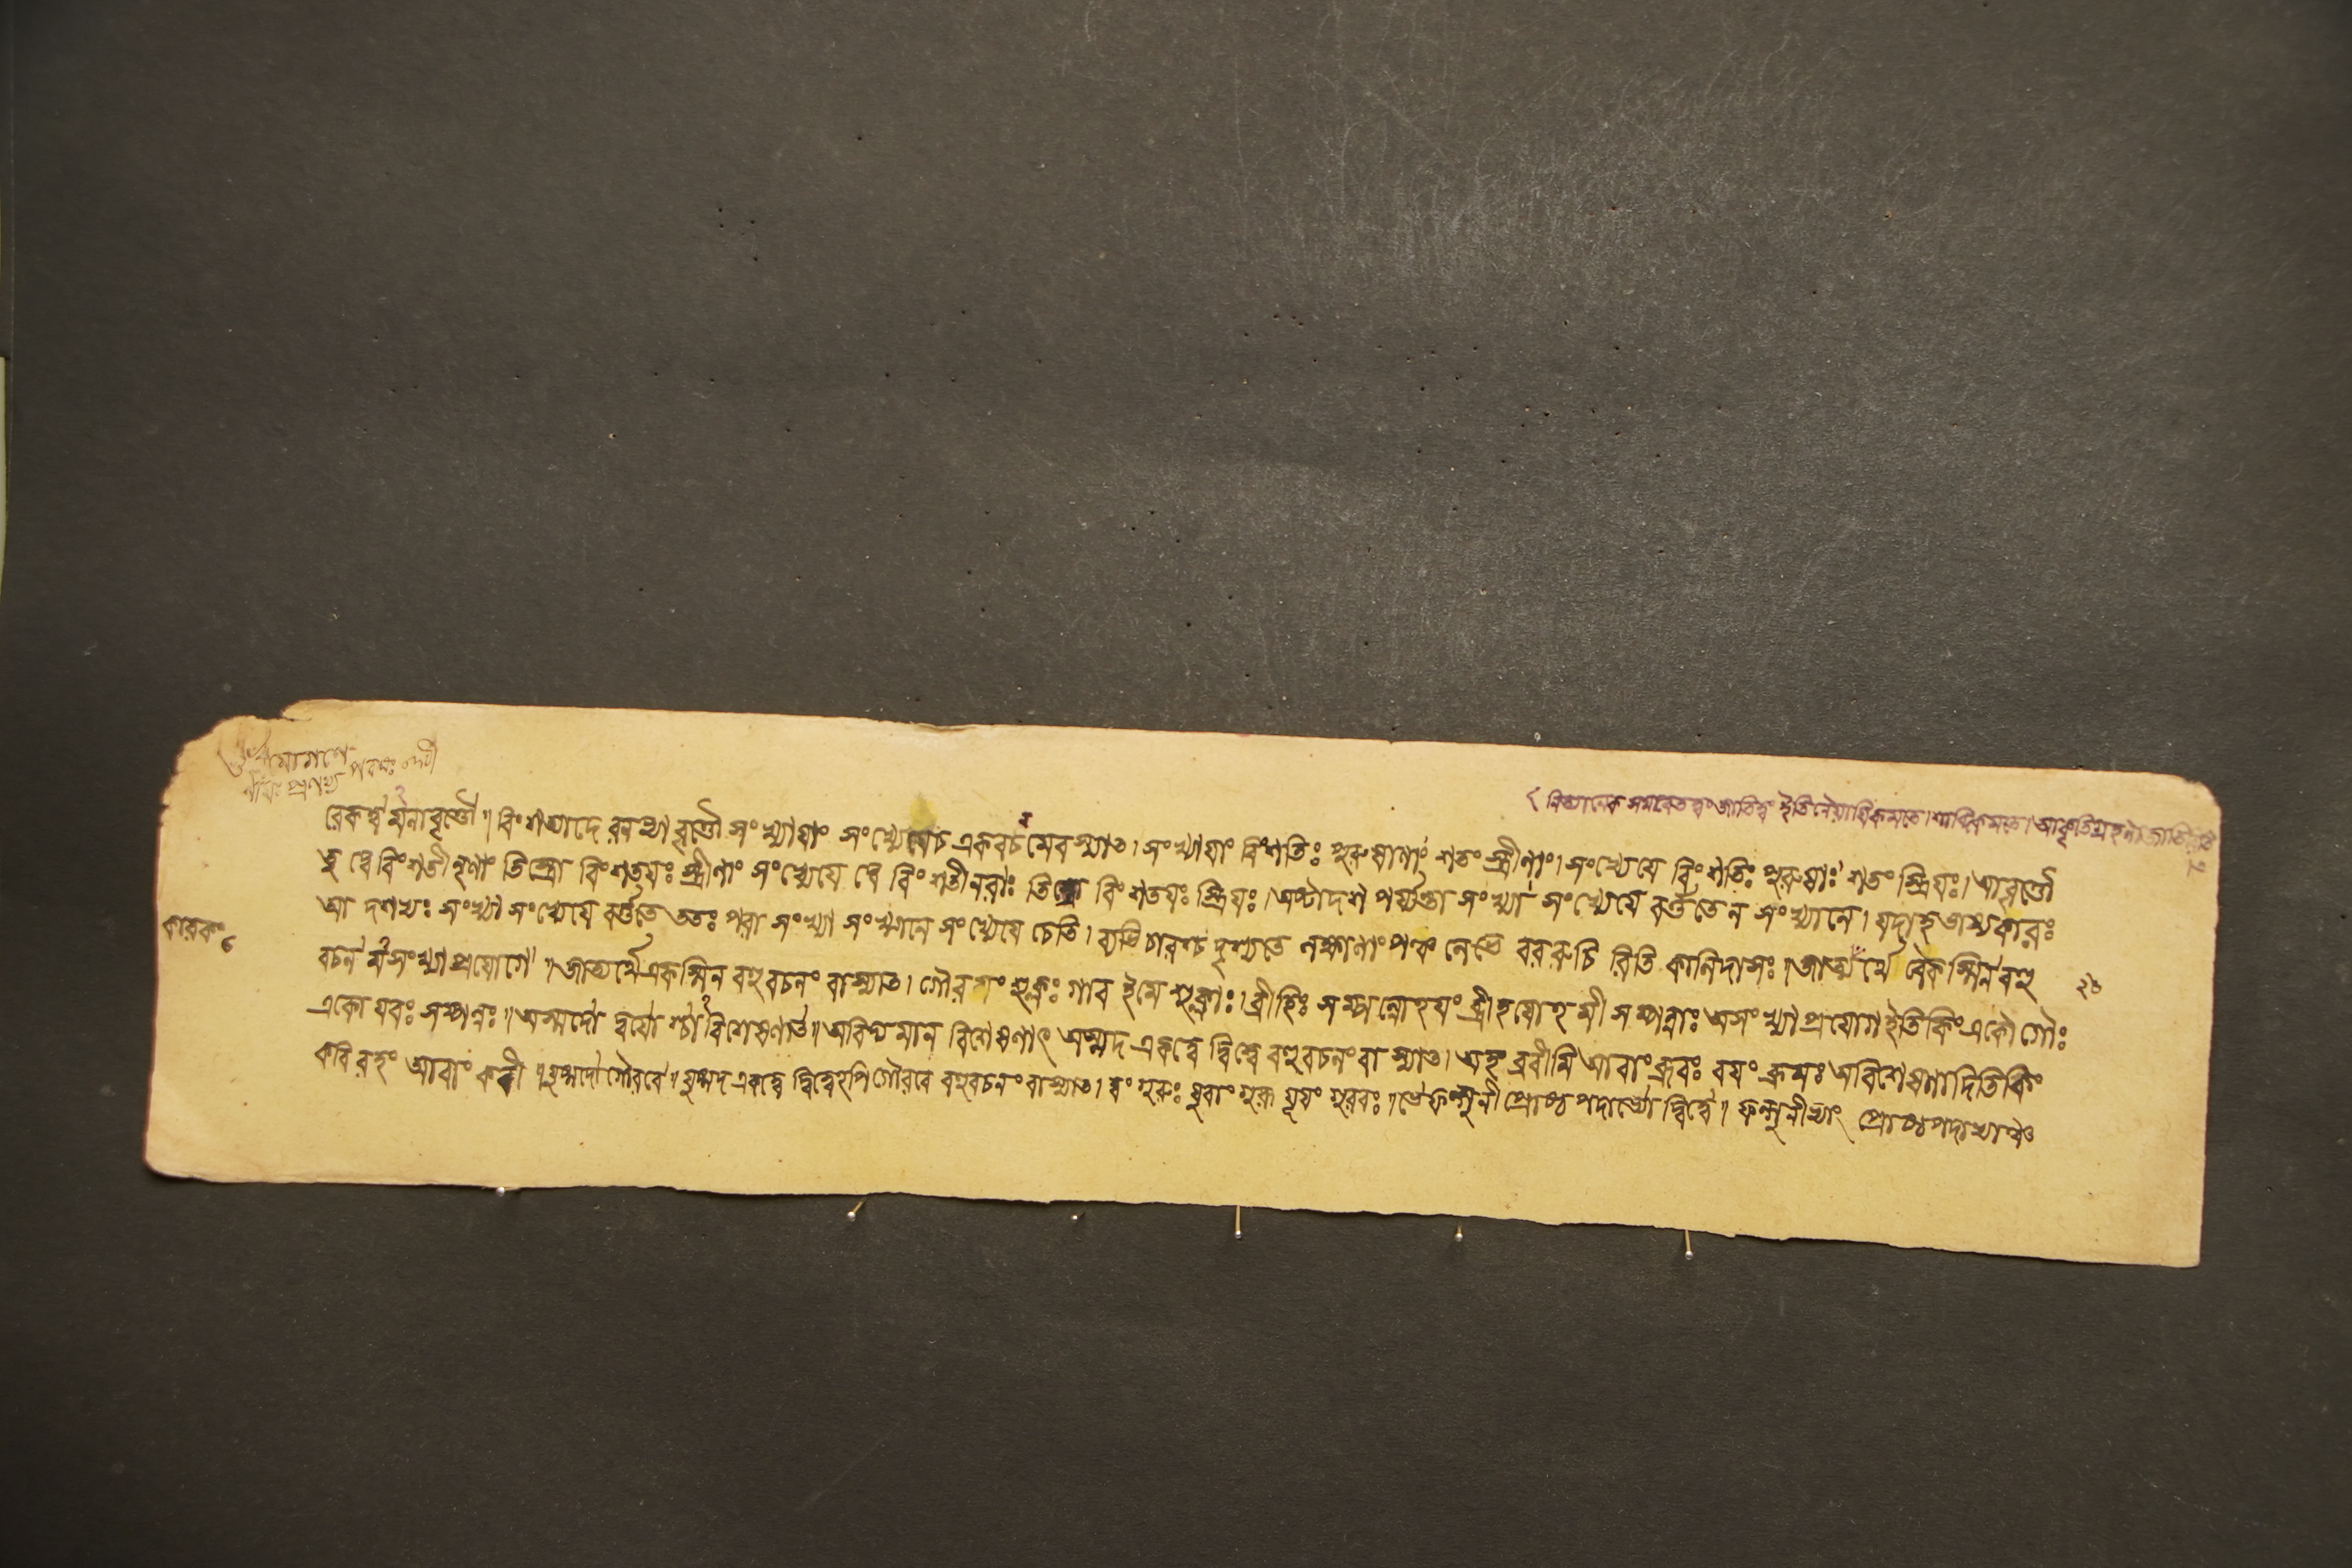 নিত্যানেক সমবেতত্বং জাতিত্বং ইতি নৈয়ায়িকমতে। শাব্দিকমতে। আকৃতিগ্রহণা জাতি
রেকত্ব মনাবৃত্তৌ॥ বিংশত্যাদে রনাবৃত্তৌ সংখ্যায়াং সংখ্যেয়েচ একবচনমেবস্যাৎ। সংখ্যায়াং বিংশতিঃ পুরুষাণাং শতং স্ত্রীণাং। সংখ্যেয়ে বিংশতিঃ পুরুষাঃ শতং স্ত্রিয়ঃ। আবৃত্তৌ
তু দ্বে বিংশতী নৃণাং তিস্রো বিংশতয়ঃ স্ত্রীণাং সংখ্যেয়ে দ্বে বিংশতী নরাঃ বিংশতয়ঃ স্ত্রিয়ঃ। অষ্টাদশ পর্য্যন্তা সংখ্যা সংখ্যেয়ে বর্ত্ততে ন সংখ্যানে। যদাহ ভাষ্যকারঃ
আ দশভ্যঃ সংখ্যা সংখ্যেয়ে বর্ত্ততে ততঃ পরা সংখ্যা সংখ্যানে সংখ্যেয়ে চেতি। ব্যভিচারশ্চ দৃশ্যতে পঞ্চ বররুচি রিতি কালিদাসঃ॥ জাত্যর্থে বেকস্মিন বহু
কারকং
বচন মসংখ্যাপ্রয়োগে॥ জাত্যর্থে একস্মিন বহুবচনং বাস্যাৎ। গৌরয়ং শুক্লঃ গাব ইমে শুক্লাঃ। ব্রীহিঃ সম্পন্নোহয়ং ব্রীহয়োহমী সম্পন্নাঃ অসংখ্যাপ্রয়োগ ইতি কিং একো গৌঃ
২৮
একো যবঃ সম্পন্নঃ॥ অস্মদো দ্বয়োশ্চাবিশেষণাৎ॥ অবিদ্যমান বিশেষণাৎ অস্মদ একত্বে দ্বিত্বে বহুবচনং বা স্যাৎ। অহং ব্রবীমি আবাং ব্রূবঃ বয়ং ব্রূমঃ অবিশেষণাদিতি কিং
কবি রহং আবাং কবী॥ যুষ্মদো গৌরবে॥ যুষ্মদ একত্বে দ্বিত্বেহপি গৌরবে বহুবচনং বাস্যাৎ। ত্বং গুরুঃ যুবাং গুরূ যূয়ং গুরবঃ॥ ভে ফল্গুনী প্রোষ্ঠপদাভ্যো দ্বিত্বে॥ ফল্গুনীভ্যাং প্রোষ্ঠপদাভ্যাঞ্চ